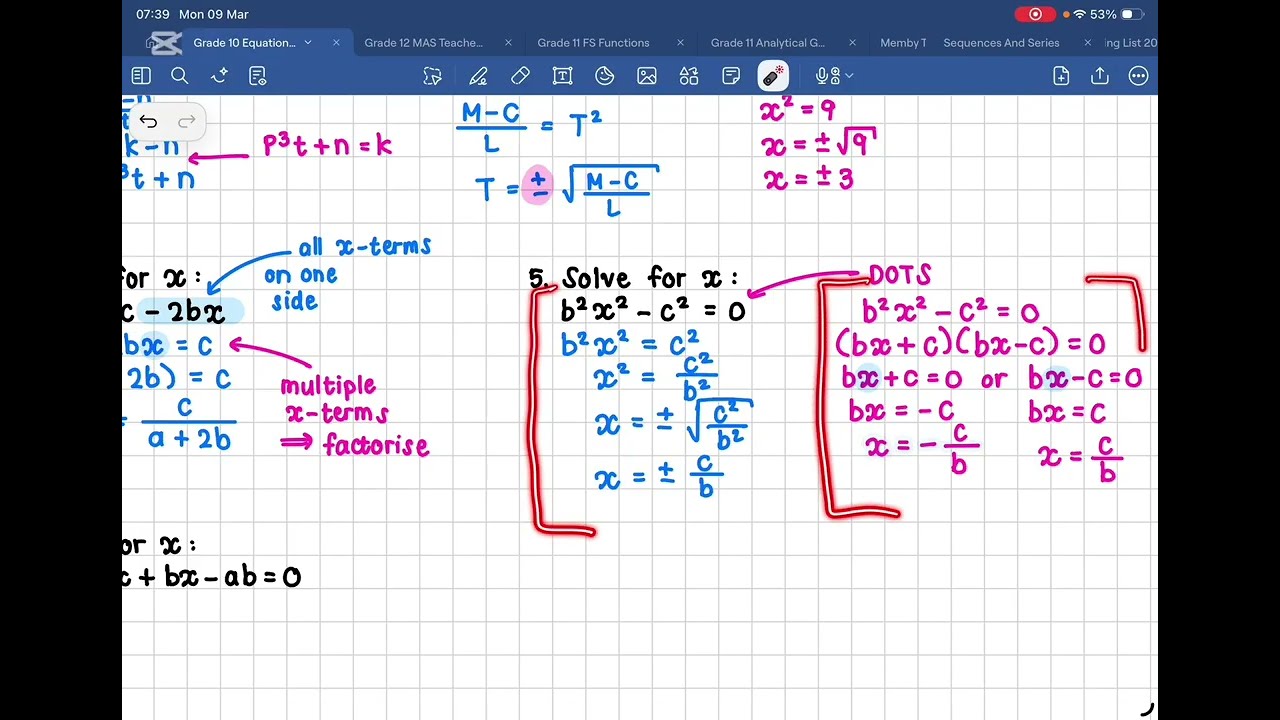 07:39 Mon 09 Mar
53%
Grade 10 Equation...
Grade 12 MAS Teache...
Grade 11 FS Functions
Grade 11 Analytical G...
Memby T
Sequences And Series
ing List 20
k – n
P³t + n = k
³t + n
M – C / L = T²
T = ± √(M – C / L)
x² = 9
x = ± √9
x = ± 3
for x:
c – 2bx
bx = c
2b) = c
c / a + 2b
all x-terms
on one
side
multiple
x-terms
⇒ factorise
5. Solve for x:
b²x² – c² = 0
b²x² = c²
x² = c² / b²
x = ± √(c² / b²)
x = ± c / b
DOTS
b²x² – c² = 0
(bx + c)(bx – c) = 0
bx + c = 0 or bx – c = 0
bx = – c bx = c
x = – c / b x = c / b
or x:
+ bx – ab = 0